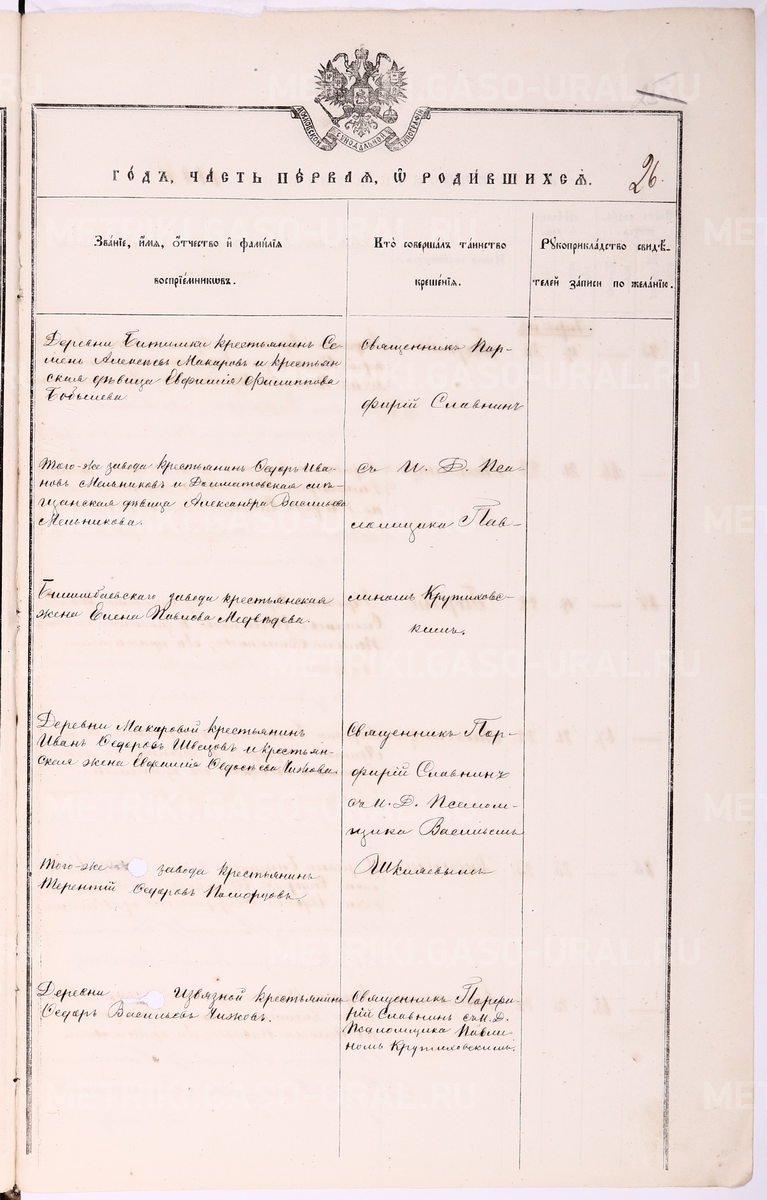 МОСКОВСКОЙ СУНОДАЛЬНОЙ ТИПОГРАФІИ
26.
ГО́ДЪ, ЧА́СТЬ ПЕ́РВАѦ, Ѡ РОДИ́ВШИХСѦ.
Зва́нїе, и́мѧ, ѻ́тчество и҆ фами́лїѧ
воспрїе́мникѡвъ.
Кто̀ соверша́лъ та́инство
креще́нїѧ.
Рꙋкоприкла́дство свидѣ́-
телей за́писи по жела́нїю.
Деревни Битимки крестьянинъ Се-
менъ Алексѣевъ Макаровъ и крестьян-
ская дѣвица Евфимія Филиппова
Бобышева
Священникъ Пор-
фирій Славнинъ
Того-же завода крестьянинъ Ѳедоръ Ива-
новъ Мельниковъ и Долматовская мѣ-
щанская дѣвица Александра Васильева
Мельникова.
съ И. Д. Пса-
ломщика Пав-
Билимбаевскаго завода крестьянская
жена Елена Павлова Медвѣдева.
линомъ Крутиховс-
кимъ.
Деревни Макаровой крестьянинъ
Иванъ Ѳедоровъ Швецовъ и крестьян-
ская жена Евфимія Ѳедосѣева Чижова.
Священникъ Пор-
фирій Славнинъ
съ И. Д. Псалом-
щика Васильемъ
Шкляевымъ
Того-же завода крестьянинъ
Терентій Ѳедоровъ
Деревни Извязной крестьянинъ
Ѳедоръ Васильевъ Чижовъ.
Священникъ Порфи-
рій Славнинъ съ И. Д.
Псаломщика Павли-
номъ Крутиховскимъ.
METRIKI.GASO-URAL.RU